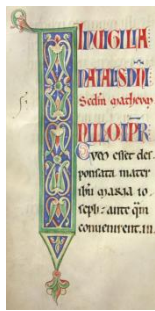 IN VIGILIA
NATALIS DNI
Scdm matheum
IN ILLO TPR
Quom esset des
ponsata mater
ihu maria io
seph: ante qm
convenirent. in